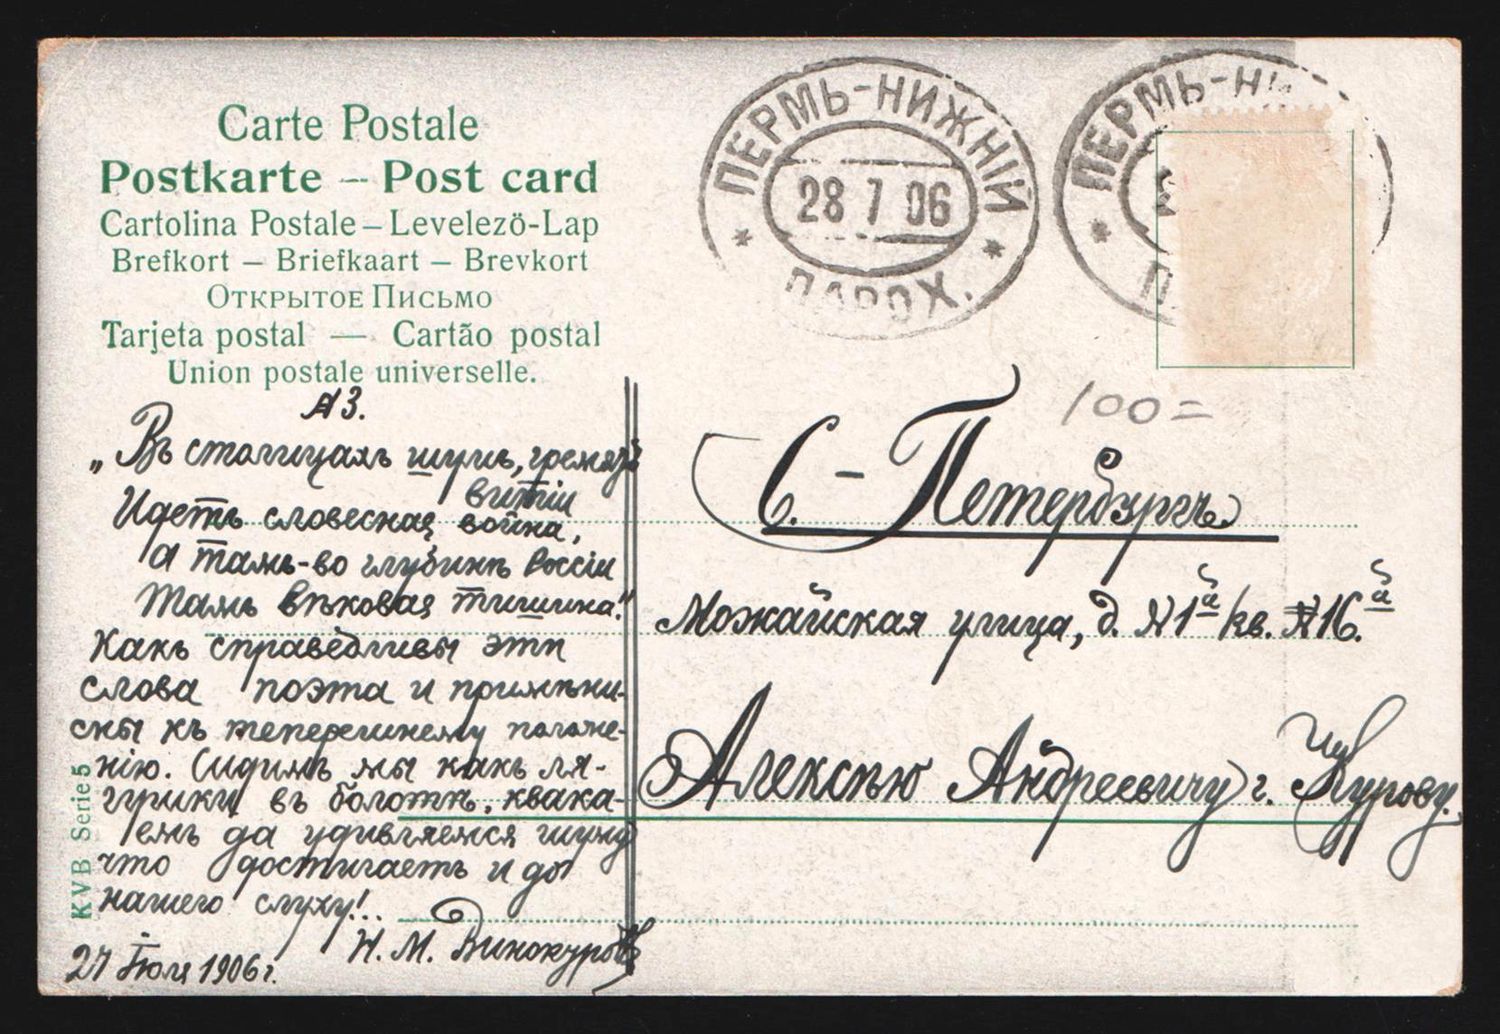 Carte Postale
Postkarte – Post card
Cartolina Postale – Levelezö-Lap
Brefkort – Briefkaart – Brevkort
Открытое Письмо
Tarjeta postal — Cartão postal
Union postale universelle.
ПЕРМЬ-НИЖНІЙ
28 7 06
ПАРОХ.
ПЕРМЬ-НИ
П
100=
№3.
„Въ столицахъ шумъ, гремятъ
витіи
Идетъ словесная война,
а тамъ-во глубинѣ Россіи
Тамъ вѣковая тишина."
Какъ справедливы эти
слова поэта и примѣни-
мы къ теперешнему положе-
нію. Сидимъ мы какъ ля-
гушки въ болотѣ, квака-
емъ да удивляемся шуму
что достигаетъ и до
нашего слуху!..
Н. М. Винокуровъ
27 Іюля 1906 г.
С.-Петербургъ
Можайская улица, д. №1й кв. №16.й
Алексѣю Андреевичу г. Чукурову.
KVB Serie 5